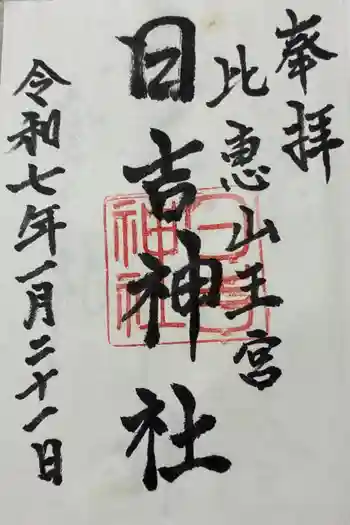 奉拝
比恵山王宮
日吉神社
令和七年一月二十一日
日吉神社